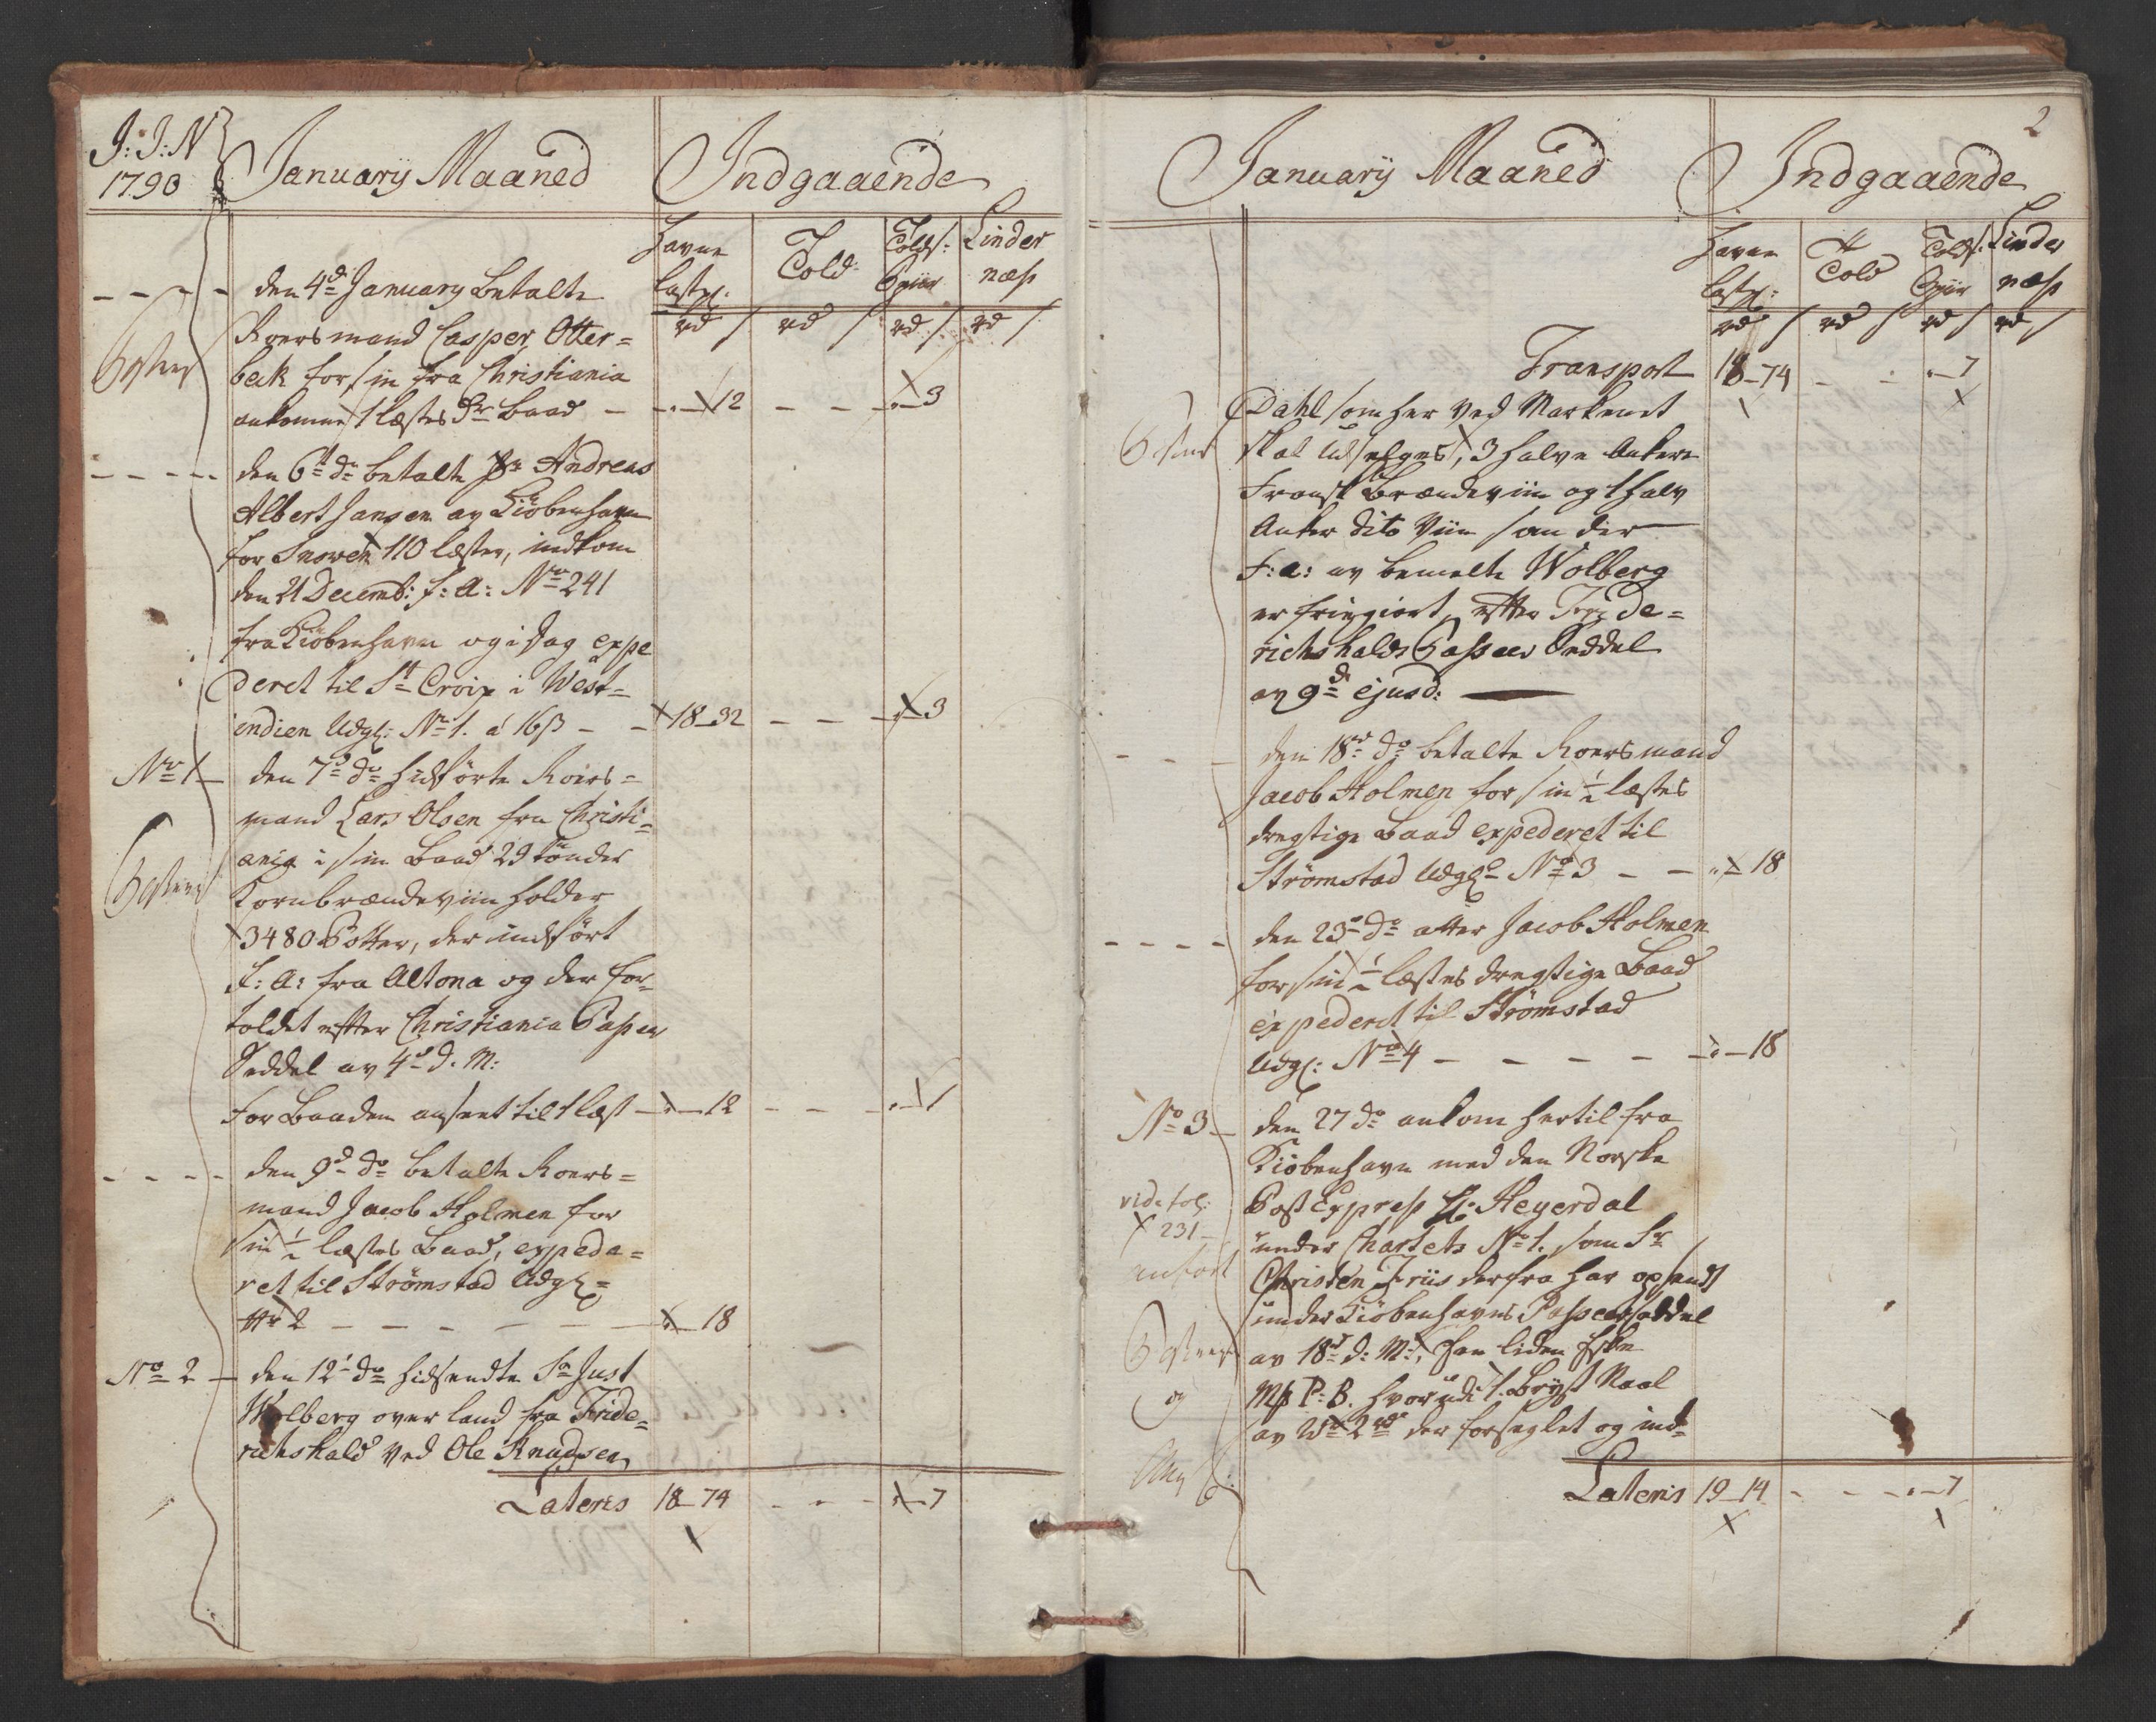 J: J: N
1790
Januarij Maaned
Indgaaende
Havne
Lastp:
Told
Told:
Linder
næss
rd rd rd rd
den 4de January betalte
Roersmand Casper Otter=
bek for sin fra Christiania
ankomne 1 læstes dr: Baad - 12 - - 3
den 6te do betalte Sr Andreas
Albert Jansen av Kiöbenhavn
for Snowen 110 læster, indkom
den 21 Decemb: f: a: No 241
fra Kiöbenhavn og i dag expe
deret til St Croix i West=
indien Udg: No 1. á 16 s - - 18 - 32 - - 3
No 1
den 7de do hidførte Roers=
mand Lars Olsen fra Christi=
ania i sin Baad 29 tønder
Kornbrændeviin holder
3480 Potter, der indført
f: a: fra Altona og der for=
toldet efter Christiania Passeer
Seddel av 4de d. M:
For Baaden anseet til 1 læst - 12 - - 1
den 9de do betalte Roers=
mand Jacob Holmen for
sin 1/2 læstes Baad, expede=
ret til Strømstad Udg
No 2 - - - - - 18
No 2
den 12te do hidsendte Sr Just
Wolberg over land fra Fride=
richshald ved Ole Knudsen
Lateris 18 - 74 - - - 7
2
January Maaned
Indgaaende
Havne
Lastp:
Told
Told:
Linder
næss
rd rd rd rd
Transport 18 - 74 - - 7
Dahl som her ved Markenet
skal udselges, 3 halve Ankere
Fransk Brændeviin og 1 halv
Anker dito Viin som der
f: a: av bemelte Wolberg
er friegiort, efter Fride=
richshalds Passeer Seddel
av 9de ejusd:
den 18de do betalte Roersmand
Jacob Holmen for sin 1/2 læstes
drægtige Baad expederet til
Strømstad Udg No 3 - - 18
den 23de do atter Jacob Holmen
for sin 1/2 læstes drægtige Baad
expederet til Strømstad
Udg: No 4 - - - - - 18
No 3
den 27 do ankom hertil fra
Kiöbenhavn med den Norske
vide fol:
231
anført
Post Express Hr: Heyerdal
under Chartets No 1. som Sr
Christen Friis derfra har opsendt
under Kiöbenhavns Passeerseddel
av 18de d: M:, een liden Eske
og
Mk P: B. hvorudi 1. Bryst Naal
av W 2 rdr der forseglet og ind=
Lateris 19 - 14 - - - 7